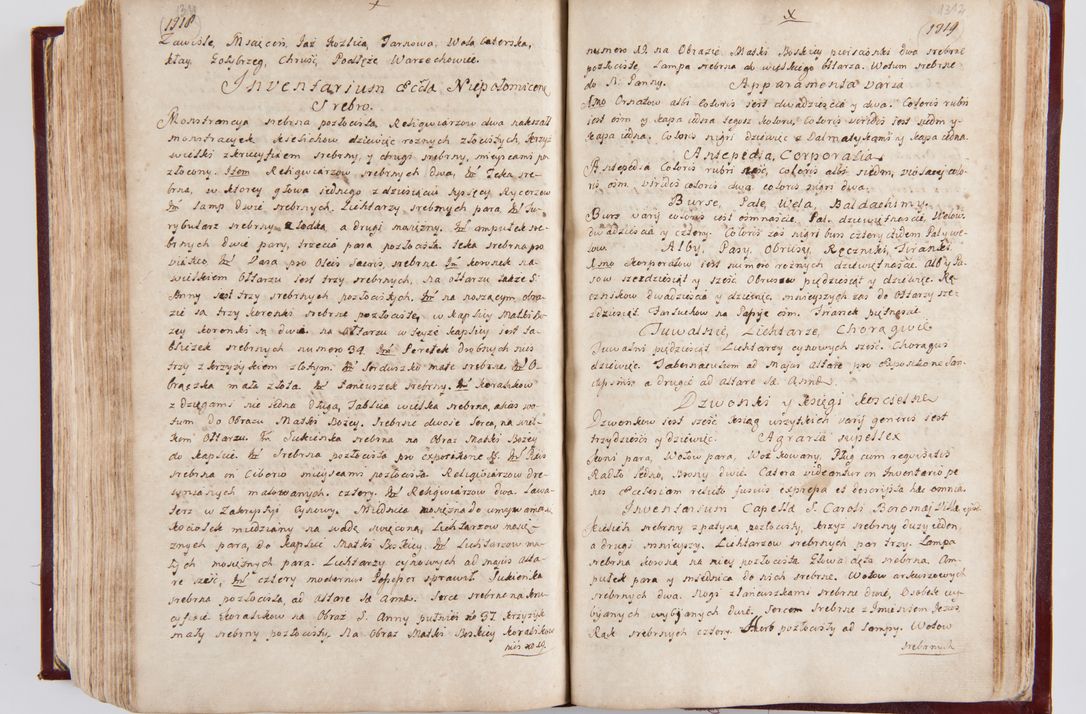 (1918)
Zawisle, Msięcin, Jaz Kozlica, Tarnowa, Wola baterska,
kłay Gołybrzeg, Chrość, Podłęże Warzechowiec.
Inventarium Ecclae Niepołomicens
Srebro.
Monstrancya srebrna pozłocista. Religwiarzow dwa nakształt
monstracyek Kielichow dziewięć roznych złocistych, krzyż
wielki z krucyfixem srebrny, y drugi srebrny, mieyscami po
złocony. Item Religwiarzow srebrnych dwa, Itẽ Teka sre-
brna, w ktorey głowa iednego z dziesiąciu tysięcy Rycerzow
Itẽ lamp dwie srebrnych. Lichtarzy srebrnych para, Itẽ Tu-
rybularz srebrny z Łodką, a drugi mosiężny. Itẽ ampułek sre-
brnych dwie pary, trzecia para pozłocista. Teka srebrna pro
viatico Itẽ Vasa pro Oleis Sacris, srebrne Itẽ koronek na
wielkiem Ołtarzu iest trzy srebrnych, na ołtarzu także S.
Anny iest trzy srebrnych pozłocistych. Itẽ na noszącym obra-
zie są trzy koronki srebrne pozłociste, w kaplicy Matki Bo-
zey koronki są dwie. na Ołtarzu w teyże kaplicy iest ta-
bliczek srebrnych numero 34. Itẽ Perełek drobnych nici
trzy z krzyżykiem złotym. Itẽ Serduszko małe srebrne. Itẽ O-
brączka mała złota. Itẽ łancuszek srebrny. Itẽ koralikow
z dzięgami nić iedna długa, Tablica wielka srebrna, alias wo-
tum do Obrazu Matki Bozey. Srebrne dwoie Serca, na wiel-
kiem Ołtarzu. Itẽ Sukienka srebrna na Obraz Matki Bozey
do kaplice. Itẽ Srebrna pozłocista pro expositione
srebrna in Ciborio mieyscami pozłocista. Religwiarzow dre-
wnianych malowanych cztery. Itẽ Religwiarzow dwa. Lava-
terz w Zakrystyi Cynowy. Miednica mosiężna do umywania
kociołek miedziany na wodę święconą, Lichtarzow mosię-
znych para, do kaplice Matki Boskiey. Itẽ Lichtarzow ma-
łych mosiężnych para. Lichtarzy cynowych ad majus alta-
re sześć, Itẽ cztery modernus sprawił. Sukienka
srebrna pozłocista, ad altare Sã Annæ. Serce srebrne na kru-
cyfixie. koralikow na Obraz S. Anny pułnici No 37 krzyżyk
mały srebrny pozłocisty. Na Obraz Matki Boskiey koralikow
nici No 19.
(1919)
numero 19. na Obrazie Matki Boskiey dwa srebrne
pozłociste, Lampa srebrna do wielkiego Ołtarza. Wotum srebrne
do N. Panny. Apparamenta varia
Imo Ornatow albi Coloris iest dwadziescia y dwa. Coloris rubri
iest osm y kapa iedna tegoż koloru, Coloris viridis iest siedm y
kapa iedna. Coloris nigri dziewięć z Dalmatykami y kapa iedna.
Antepedia, Corporalia
Antepedia Coloris rubri sześć, coloris albi siedm, violacei colo-
ris osm. viridis coloris dwa coloris nigri dwa.
Burse, Pale, Wela, Baldachimy.
Burs varij coloris iest osmnascie Pal. dziewiętnaście, Welow
dwadziescia y cztery. Coloris zaś nigri burs cztery siedem Pal y we-
low. Alby, Pasy, Obrusy, Ręczniki, Firanki
Imo korporałow iest numero roznych dziewiętnaście. Alb y Pa-
sow szescdziesiąt y sześć. Obrusow pięćdziesiąt y dziewięć. Rę-
cznikow dwadziescia y dziewięć, mnieyszych zaś do Ołtarzy sze-
zdziesiąt. Fartuchow na Stopnie osm. Firanek piętnaście.
Tuwalnie, Lichtarze, Chorągwie
Tuwalni pięćdziesiąt Lichtarzy cynowych sześć. Chorągwi
dziewięć. Tabernaculum ad Majus altare pro Expositione San-
ctissimi a drugie ad altare Sã Annæ
Dzwonki y księgi koscielne
Dzwonkow iest sześć ksiąg wszytkich varij generis iest
trzydzieści y dziewięć. Agraria supellex
koni para, Wołow para, Woz kowany, Pług cum requisitis
Radło iedno, Brony dwie. Cætera videantur in Inventario pe-
nes Ecclesiam relicto fusius expressa et descripta hæc omnia.
Inventarium Capellæ S. Caroli Boromæi
Kielich srebrny z patyną pozłocisty, krzyż srebrny duży ieden,
a drugi mnieyszy. Lichtarzow srebrnych par trzy. Lampa
srebrna korona na niey pozłocista Głowa cięta srebrna. Am-
pułek para y miednica do nich srebrne. Wotow arkuszowych
srebrnych dwa. Nogi z łancuszkami srebrne dwie, Osobek wy-
biianych wybiianych dwie. Sercem srebrne z Imieniem Jezus
Rąk srebrnych cztery. Herb pozłocisty ad lampy. Wotow
srebrnych